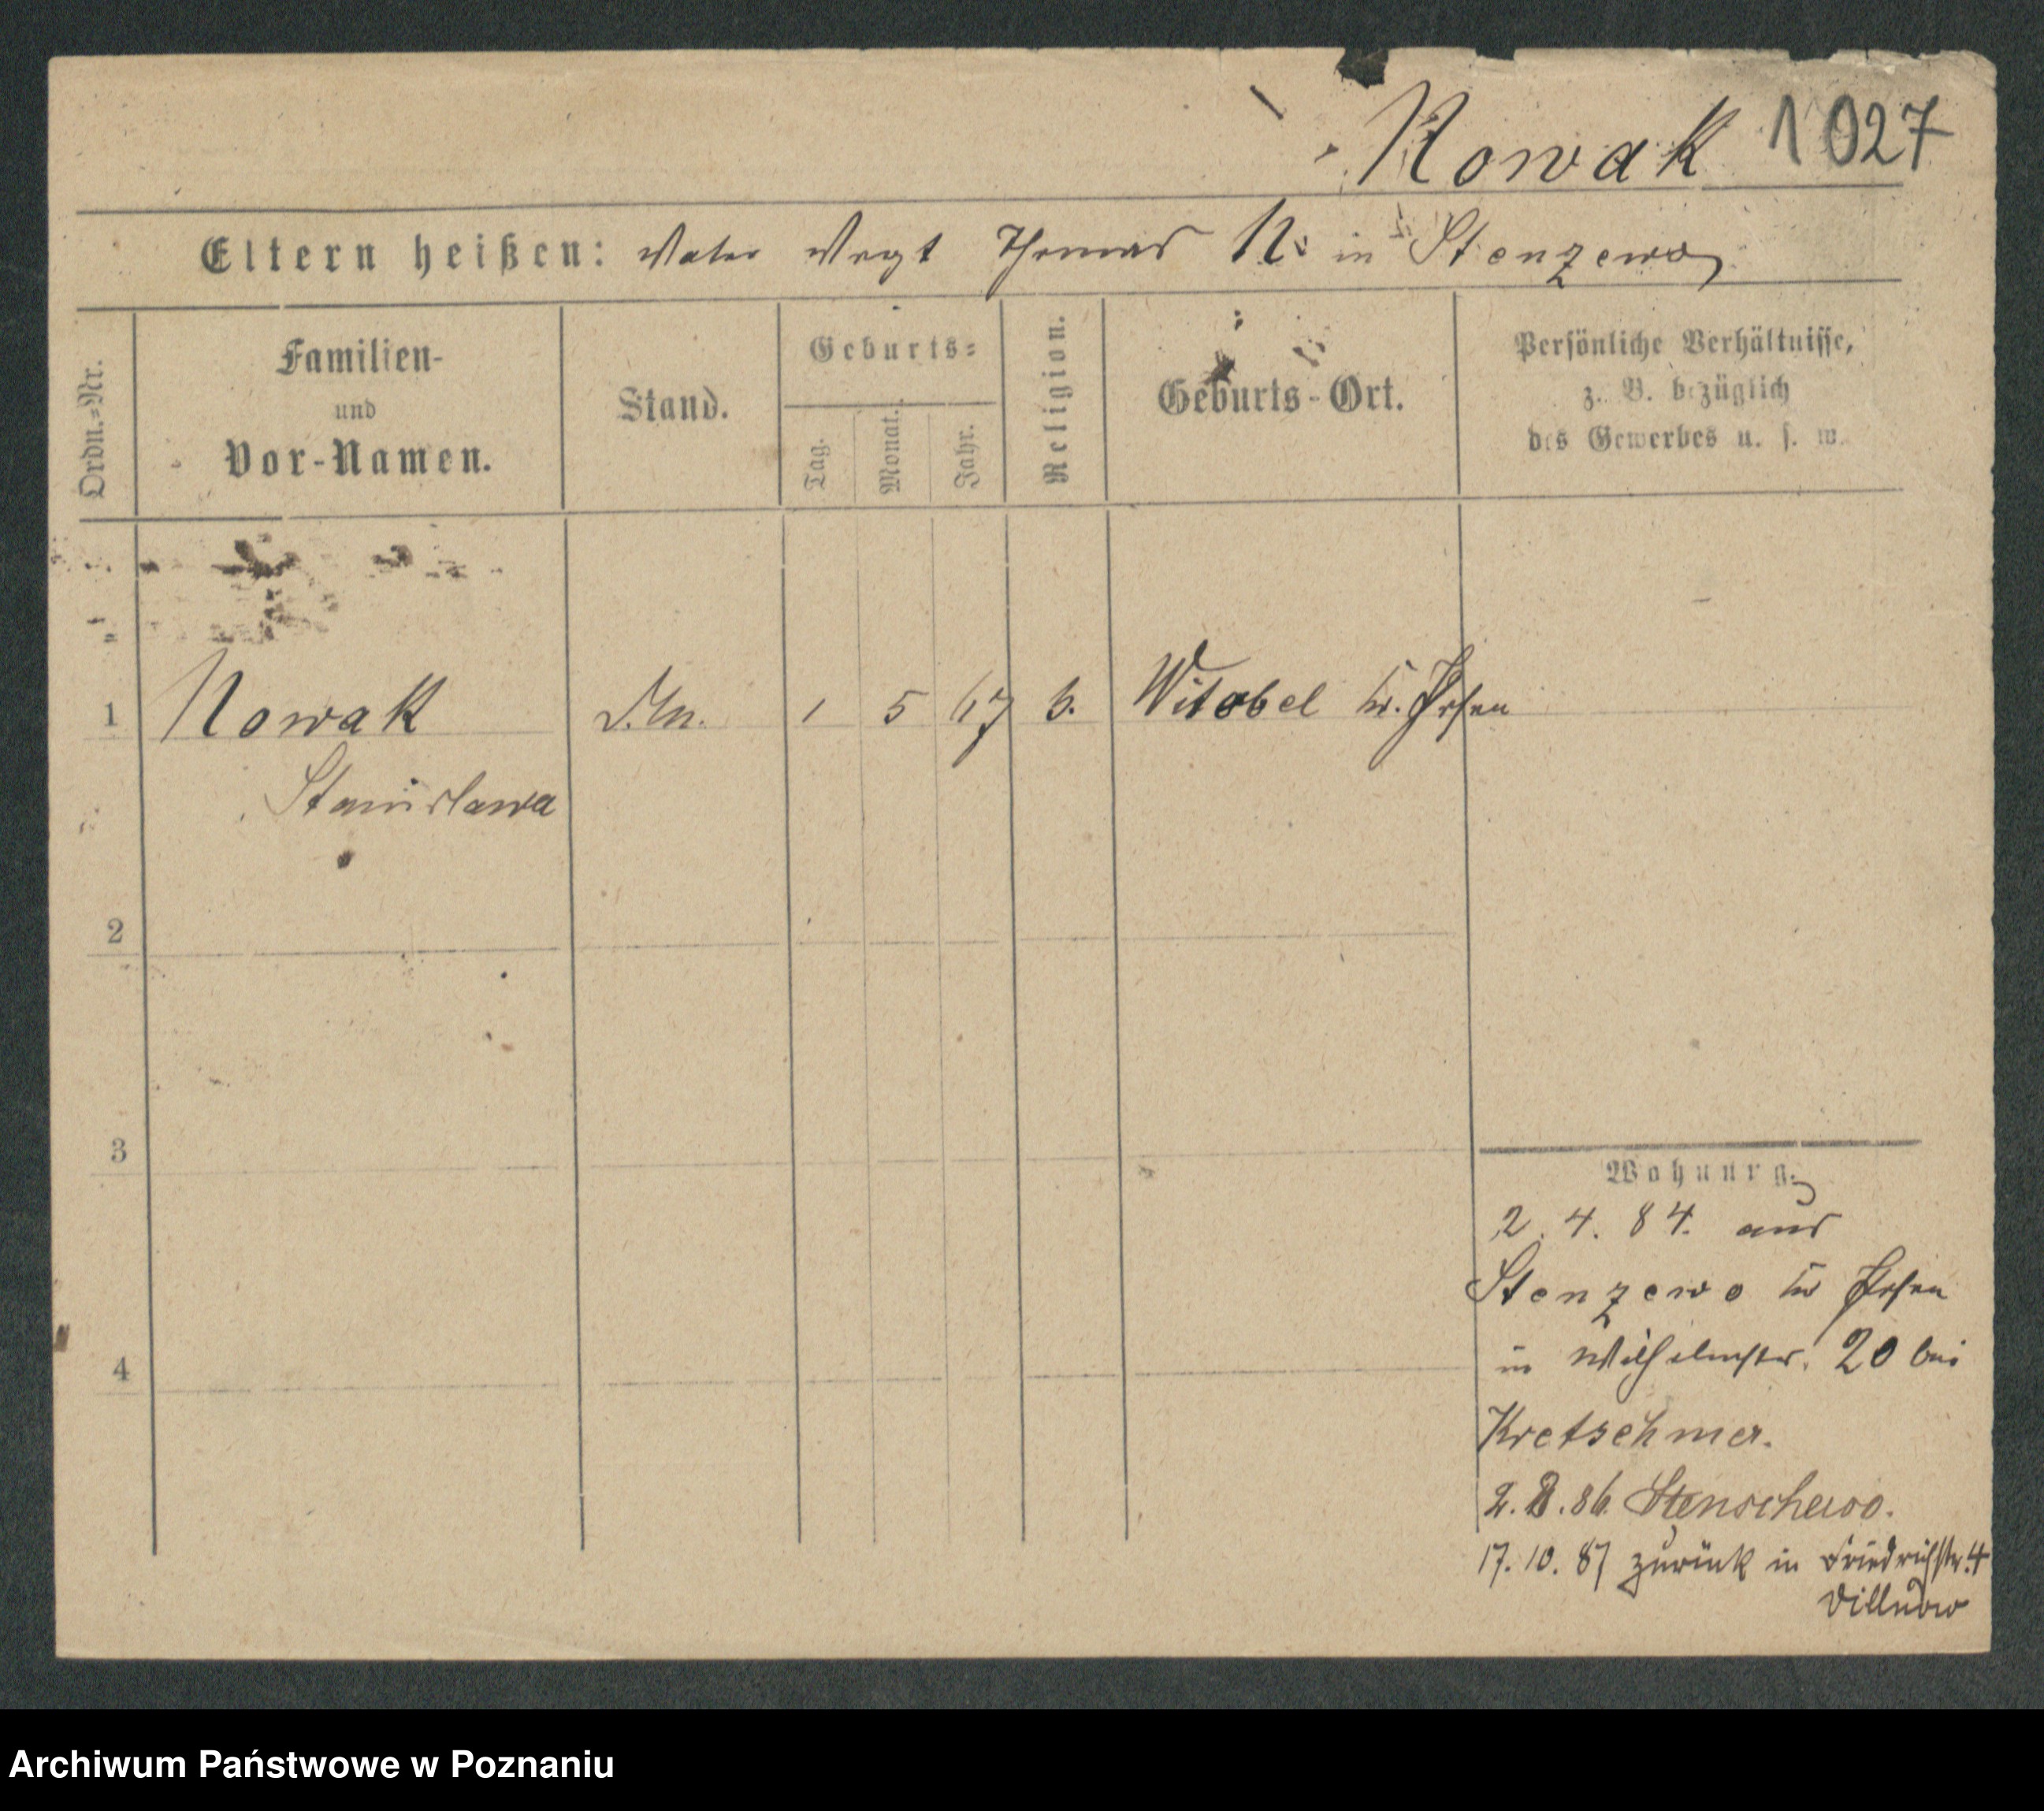 Nowak 1027
Eltern heißen: Vater Vogt Thomas N. in Stenzewo
Ordn.-Nr.
Familien-
und
Vor-Namen.
Stand.
Geburts-
Tag.
Monat.
Jahr.
Religion.
Geburts-Ort.
Persönliche Verhältnisse,
z. B. bezüglich
des Gewerbes u. s. w.
1 Nowak D.M. 1 5 67 k. Witobel Kr. Posen
Stanislawa
2
3
4
Wohnung.
2. 4. 84. aus
Stenzewo Kr Posen
in Wilhelmstr. 20 bei
Kretschmer.
2. 8. 86. Stenschewo.
17. 10. 87 zurück in Friedrichstr. 4
Villnow
Archiwum Państwowe w Poznaniu